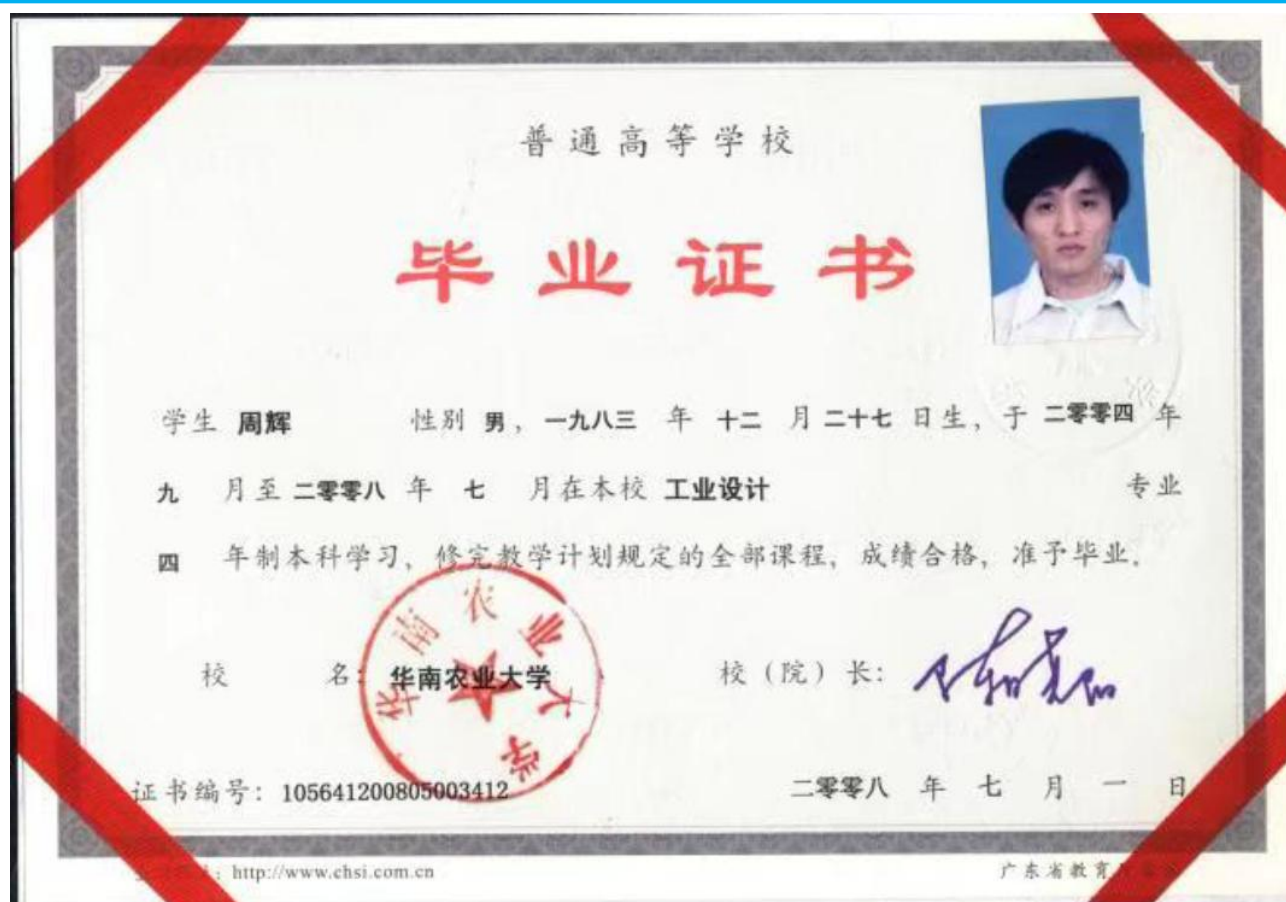 普通高等学校
毕业证书
学生 周辉 性别 男，一九八三 年 十二 月 二十七 日生，于 二零零四 年
九 月至 二零零八 年 七 月在本校 工业设计 专业
四 年制本科学习，修完教学计划规定的全部课程，成绩合格，准予毕业.
华南农业大学
校 名：华南农业大学 校（院）长：
证书编号：105641200805003412 二零零八 年 七 月 一 日
http://www.chsi.com.cn 广东省教育